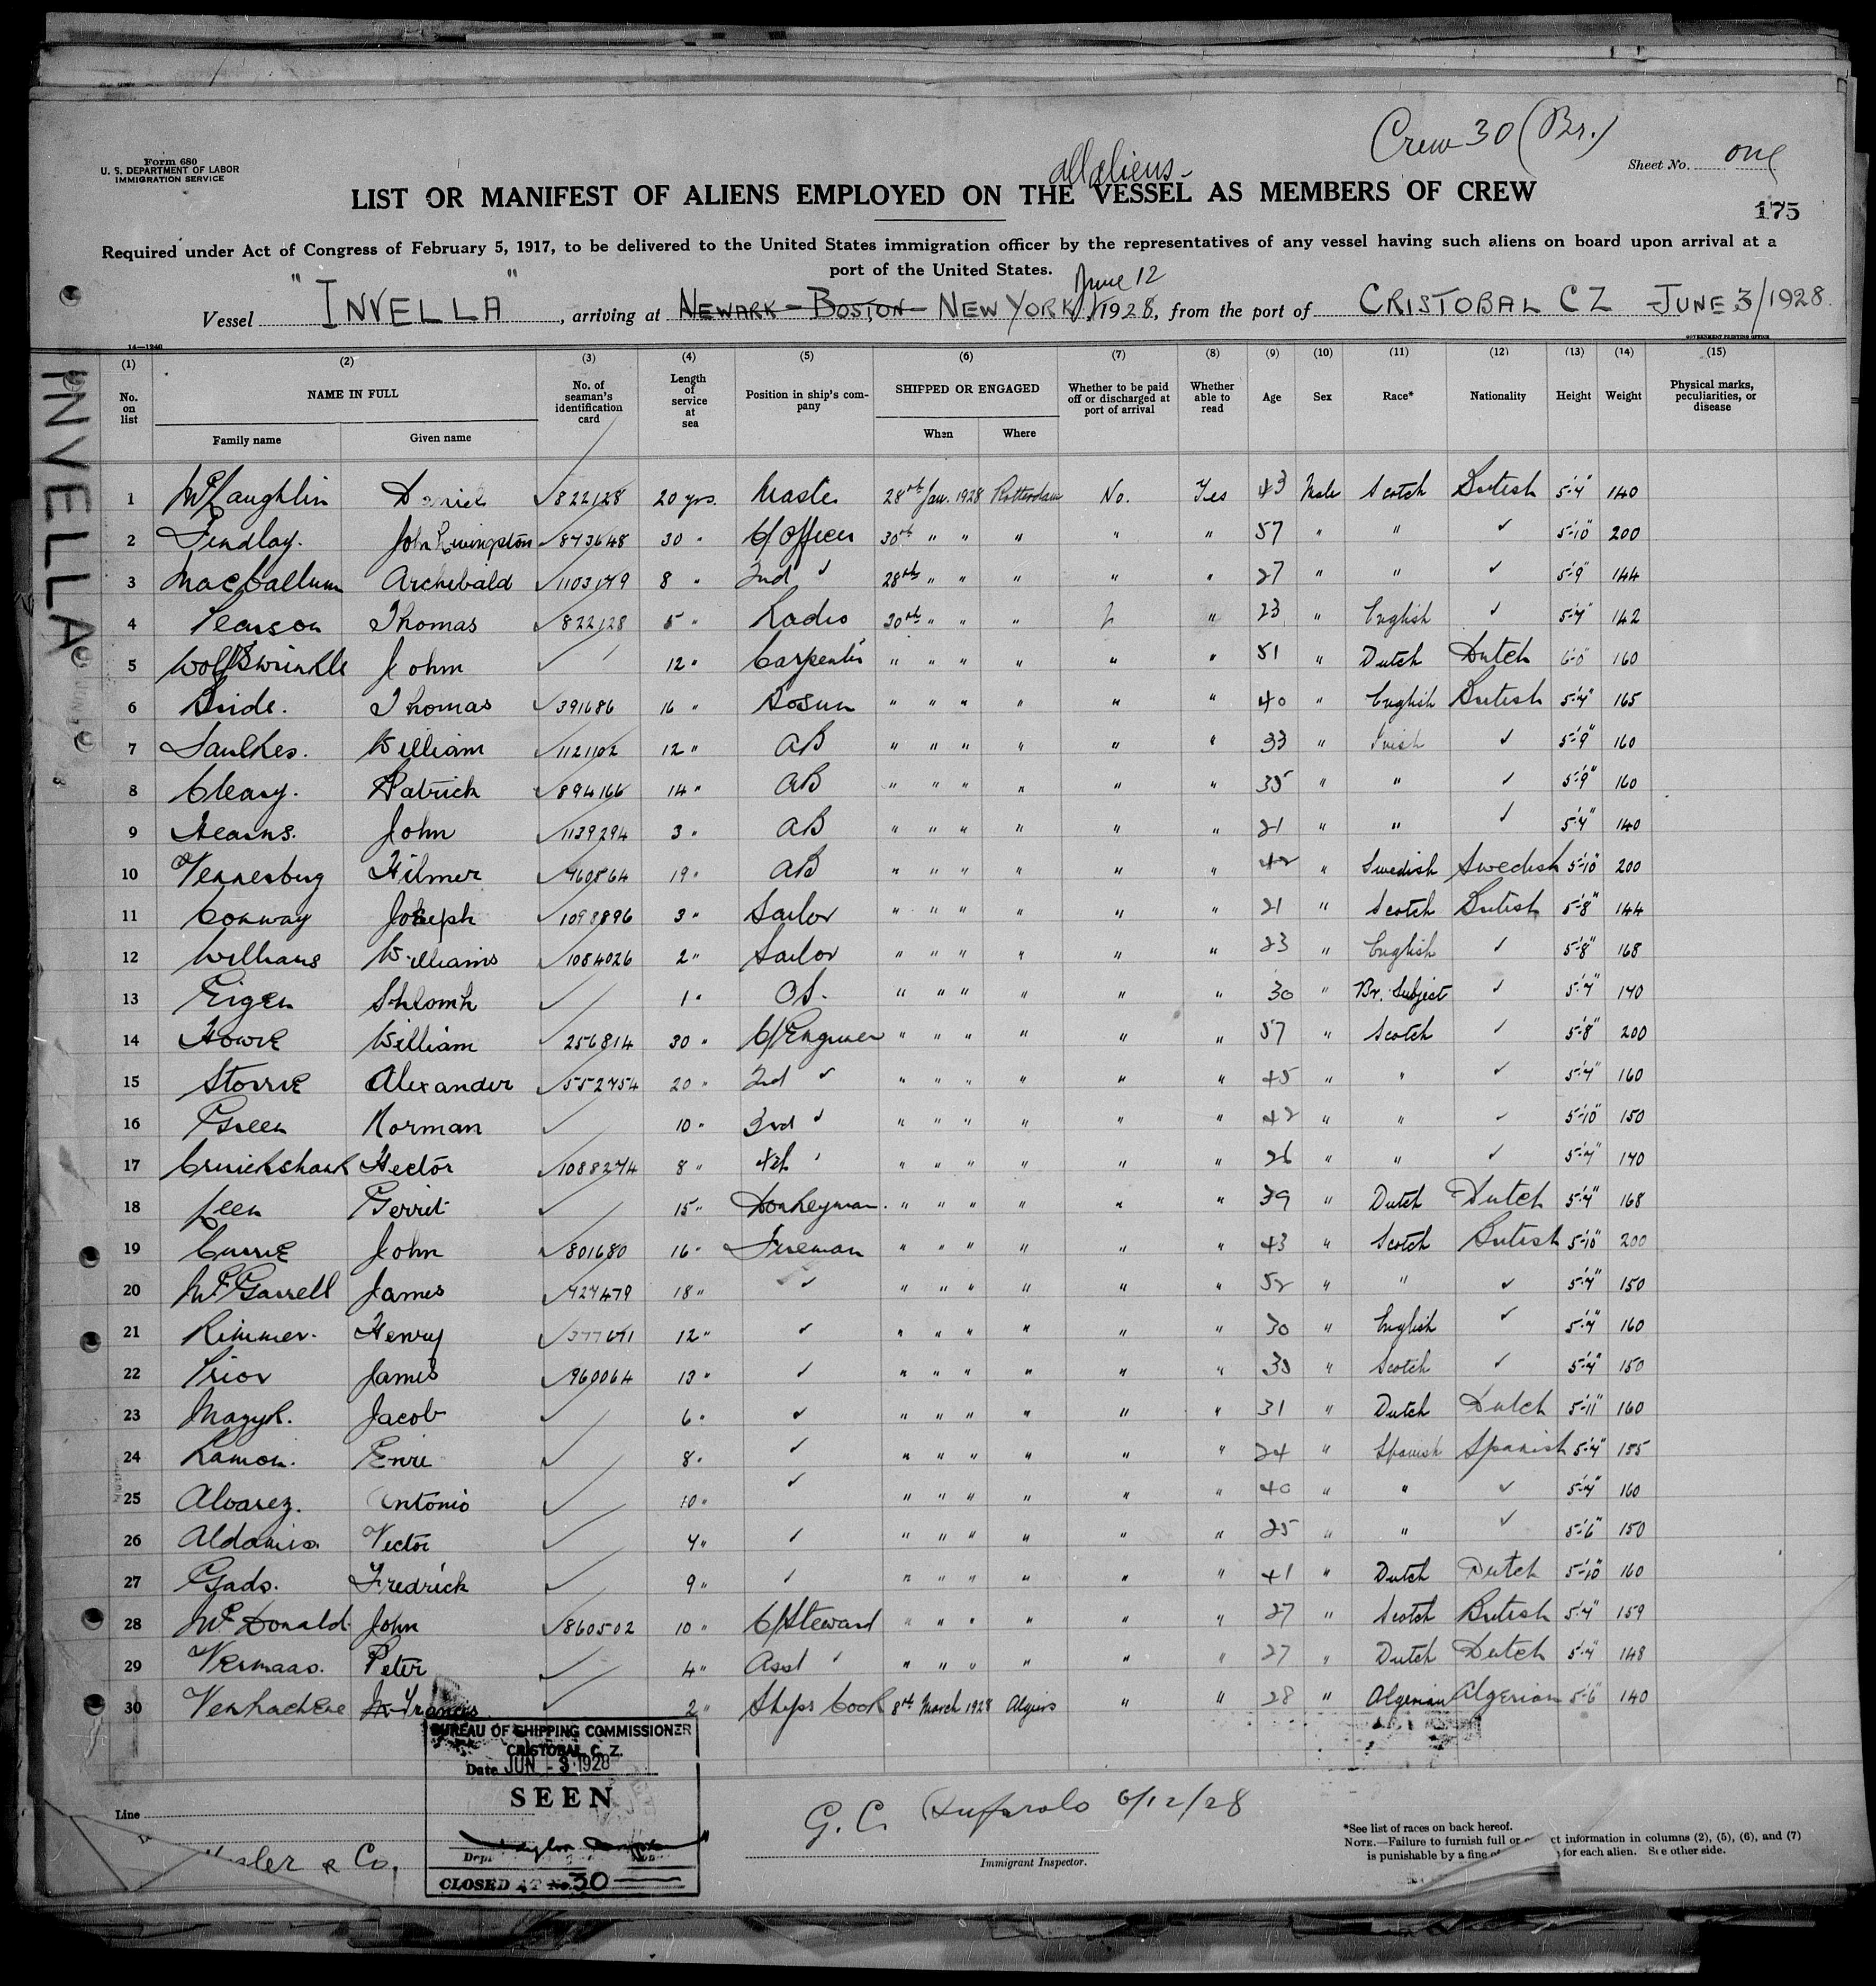 Crew 30 (Br.)
Form 680
U. S. DEPARTMENT OF LABOR
IMMIGRATION SERVICE
all aliens
Sheet No. one
LIST OR MANIFEST OF ALIENS EMPLOYED ON THE VESSEL AS MEMBERS OF CREW
175
Required under Act of Congress of February 5, 1917, to be delivered to the United States immigration officer by the representatives of any vessel having such aliens on board upon arrival at a
port of the United States.
June 12
Vessel "INVELLA", arriving at NEWARK - BOSTON - NEW YORK, 1928, from the port of CRISTOBAL CZ JUNE 3/1928
14—1240
GOVERNMENT PRINTING OFFICE
INVELLA
(1) (2) (3) (4) (5) (6) (7) (8) (9) (10) (11) (12) (13) (14) (15)
No. on list NAME IN FULL No. of seaman's identification card Length of service at sea Position in ship's company SHIPPED OR ENGAGED Whether to be paid off or discharged at port of arrival Whether able to read Age Sex Race* Nationality Height Weight Physical marks, peculiarities, or disease
Family name Given name When Where
1 McLaughlin Daniel ✓822128 20 yrs. Master 28th Jan. 1928 Rotterdam No. Yes 43 Male Scotch British 5'-4" 140
2 Findlay. John Livingston ✓843648 30 " C/Officer 30th " " " " " 57 " " ✓ 5'-10" 200
3 MacCallum Archibald ✓1103149 8 " 2nd ✓ 28th " " " " " 27 " " ✓ 5'-9" 144
4 Pearson Thomas ✓822128 5 " Radio 30th " " " " 23 " English ✓ 5'-4" 142
5 John ✓ 12 " Carpenter " " " " " " 51 " Dutch Dutch 6'-0" 160
6 Bride. Thomas ✓391686 16 " Bosun " " " " " " 40 " English British 5'-4" 165
7 Saulkes. William ✓1121102 12 " AB " " " " " " 33 " Irish ✓ 5'-9" 160
8 Cleary. Patrick ✓894166 14 " AB " " " " " " 35 " " ✓ 5'-9" 160
9 Hearns. John ✓1139294 3 " AB " " " " " " 21 " " ✓ 5'-4" 140
10 Vennesburg Hilmer ✓960864 19 " AB " " " " " " 42 " Swedish Swedish 5'-10" 200
11 Conway Joseph ✓1098896 3 " Sailor " " " " " " 21 " Scotch British 5'-8" 144
12 Williams Williams ✓1084026 2 " Sailor " " " " " " 23 " English ✓ 5'-8" 168
13 Eigen Shlomh ✓ 1 " OS. " " " " " " 30 " Br. Subject ✓ 5'-4" 140
14 Howie William ✓256814 30 " C/Engineer " " " " " " 57 " Scotch ✓ 5'-8" 200
15 Storrie Alexander ✓552454 20 " 2nd ✓ " " " " " " 45 " " ✓ 5'-4" 160
16 Green Norman ✓ 10 " 3rd ✓ " " " " " " 42 " " ✓ 5'-10" 150
17 Cruickshank Hector ✓1088274 8 " 4th " " " " " " 26 " " ✓ 5'-4" 140
18 Gerrit ✓ 15 " Donkeyman. " " " " " " 39 " Dutch Dutch 5'-4" 168
19 Currie John ✓801680 16 " Fireman " " " " " " 43 " Scotch British 5'-10" 200
20 McGarrell James ✓424479 18 " ✓ " " " " " " 52 " " ✓ 5'-4" 150
21 Rimmer. Henry ✓377671 12 " ✓ " " " " " " 30 " English ✓ 5'-4" 160
22 Prior James ✓960064 13 " ✓ " " " " " " 30 " Scotch ✓ 5'-4" 150
23 Jacob ✓ 6 " ✓ " " " " " " 31 " Dutch Dutch 5'-11" 160
24 Ramon. ✓ 8 " ✓ " " " " " " 24 " Spanish Spanish 5'-4" 155
25 Alvarez. Antonio ✓ 10 " ✓ " " " " " " 40 " " ✓ 5'-4" 160
26 Aldamis Vector ✓ 4 " ✓ " " " " " " 25 " " ✓ 5'-6" 150
27 Gado. Fredrick ✓ 9 " ✓ " " " " " " 41 " Dutch Dutch 5'-10" 160
28 McDonald John ✓860502 10 " C/Steward " " " " " " 27 " Scotch British 5'-4" 159
29 Vermaas. Peter ✓ 4 " Asst " " " " " " 27 " Dutch Dutch 5'-4" 148
30 Francis ✓ 2 " Ships Cook 8th March 1928 Algiers " " 28 " Algerian Algerian 5'-6" 140
BUREAU OF SHIPPING COMMISSIONER
CRISTOBAL C. Z.
Date JUN - 3 1928
SEEN
CLOSED AT No. 30
Line
& Co.
G. C. 6/12/28
Immigrant Inspector.
*See list of races on back hereof.
NOTE.—Failure to furnish full or ct information in columns (2), (5), (6), and (7)
is punishable by a fine of for each alien. See other side.